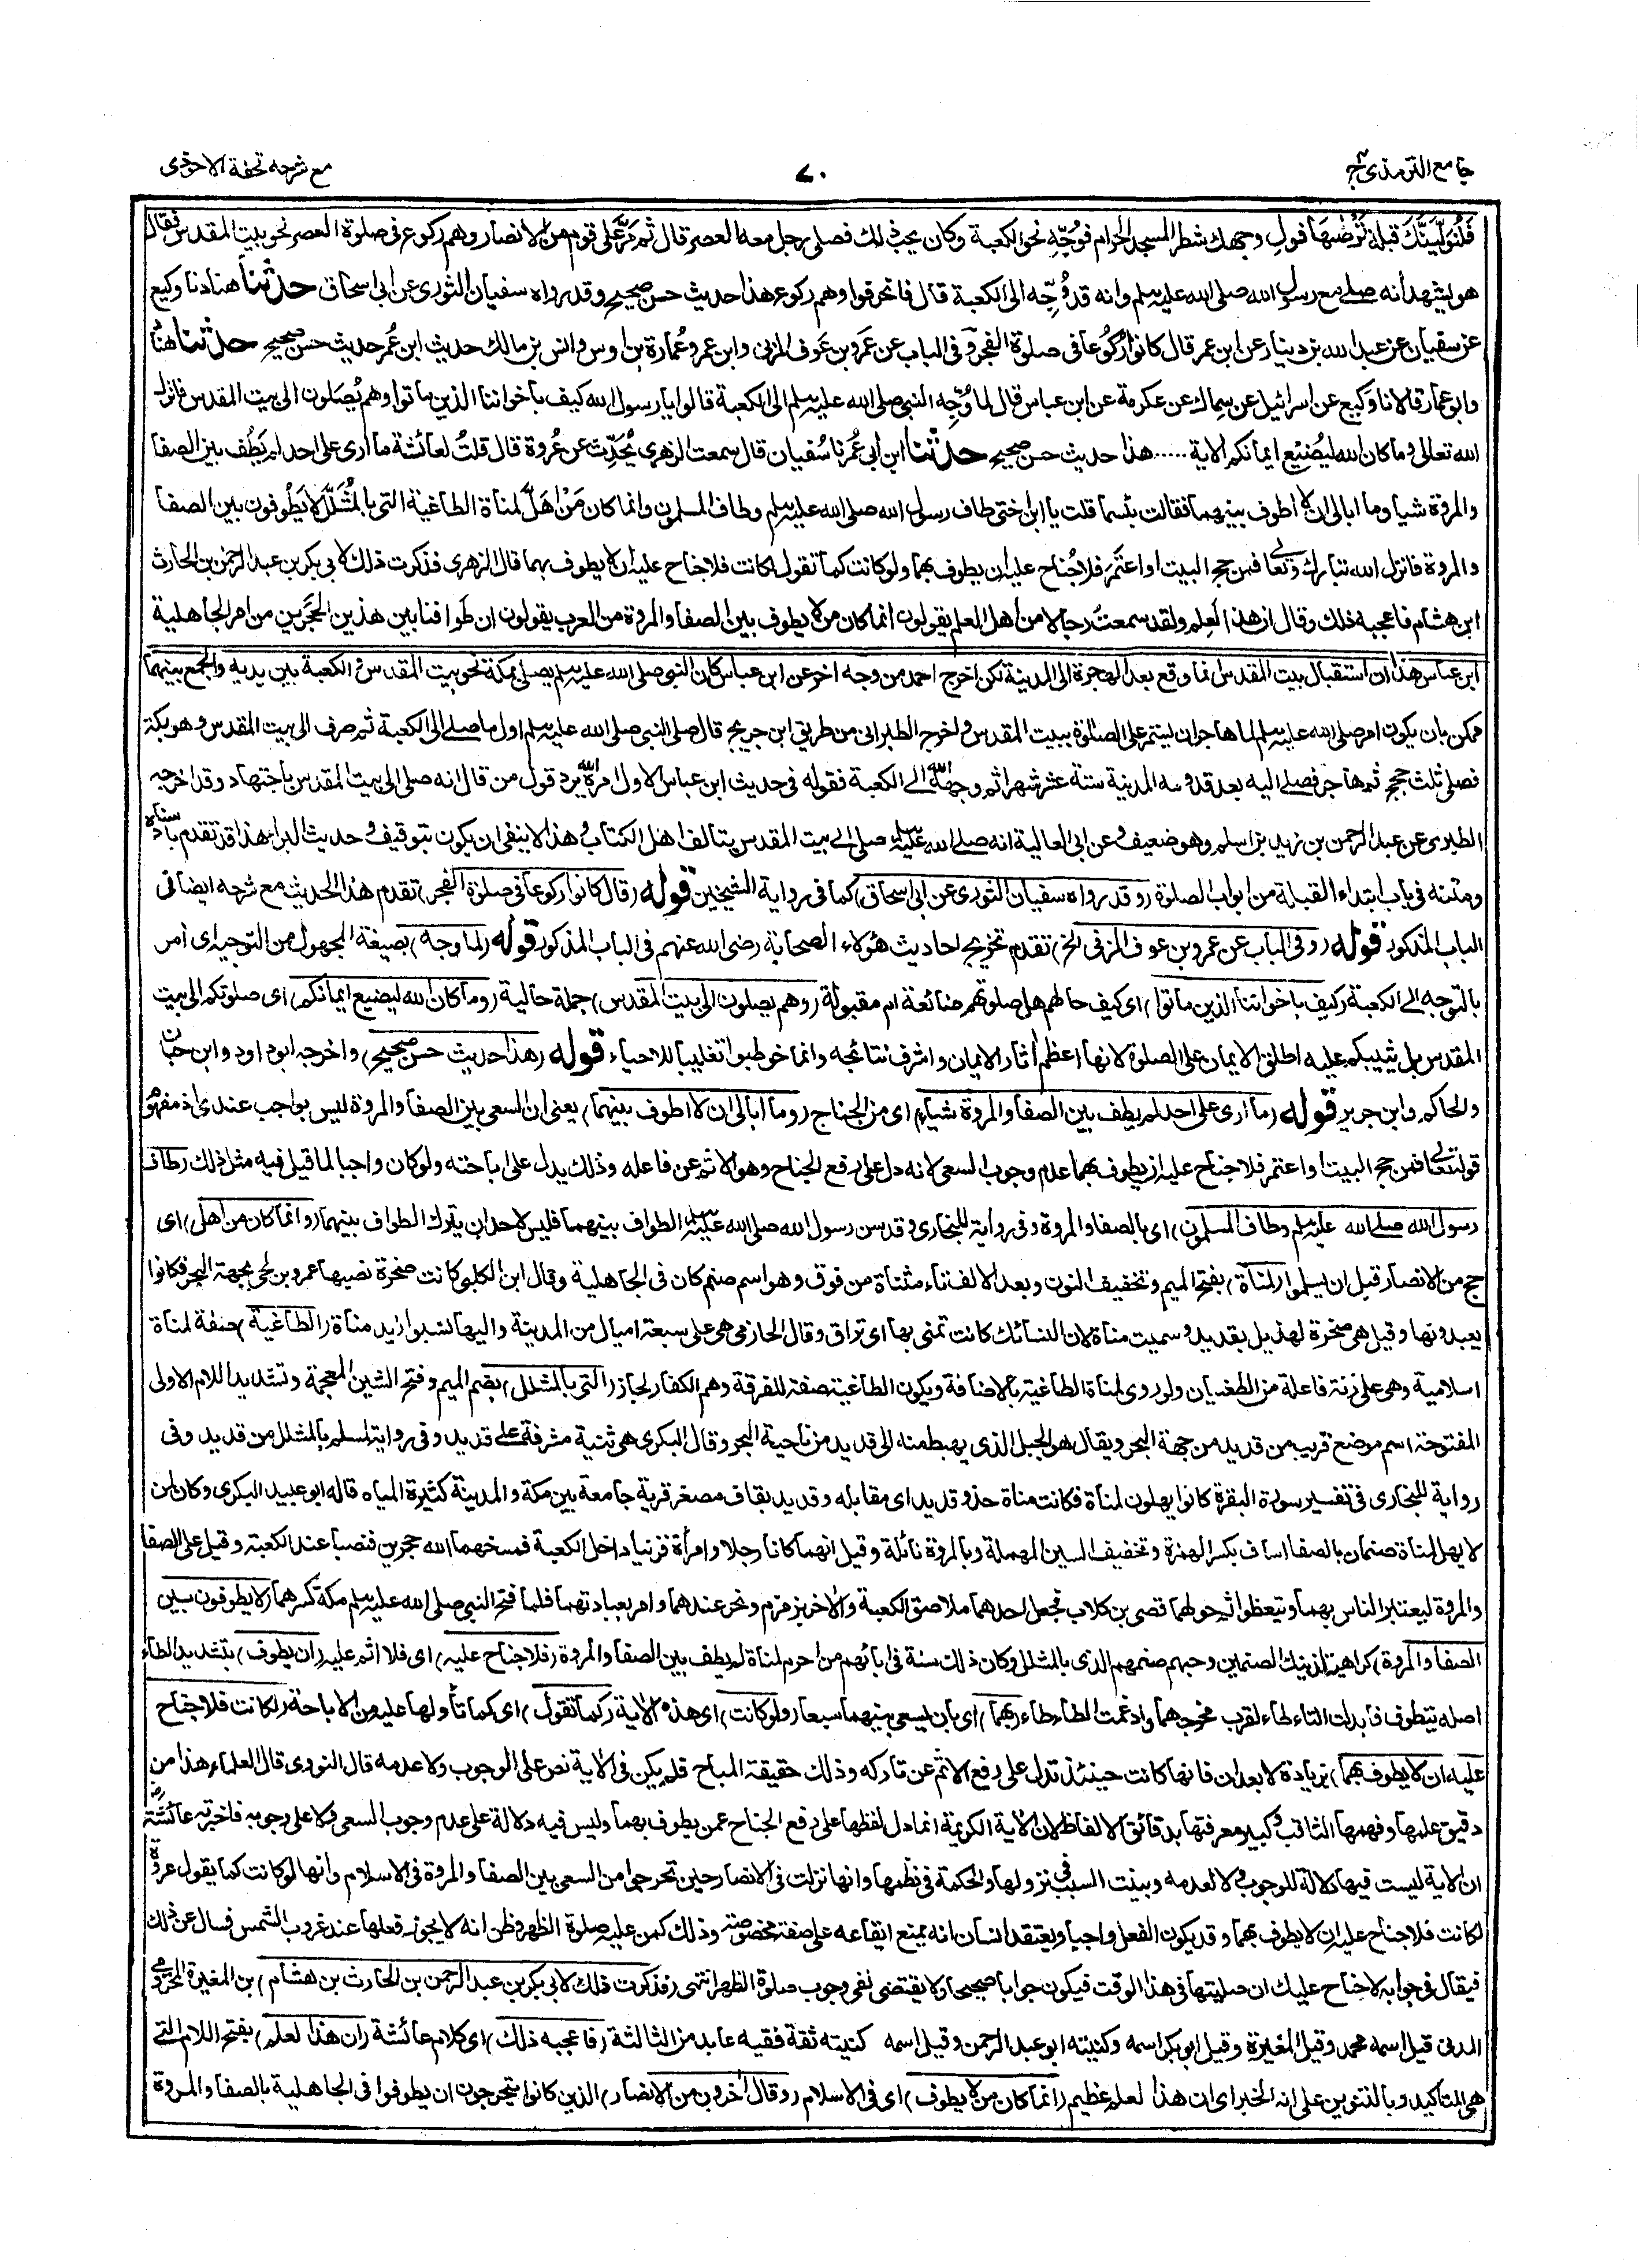 جامع الترمذی ج ۴
۷۰
مع شرحه تحفة الاحوذی
فَلَنُوَلِّيَنَّكَ قِبْلَةً تَرْضٰىهَا فولِّ وجهك شطر المسجد الحرام فوُجِّه نحو الكعبة وكان يحب ذلك فصلى رجل معه العصر قال ثم مَرَّ على قوم من الانصار وهم ركوع فى صلوة العصر نحو بيت المقدس فقال
هو يشهد أنه صلى مع رسول الله صلى الله عليه وسلم وانه قد وُجِّه الى الكعبة قال فانحرفوا وهم ركوع هذا حديث حسن صحيح وقد رواه سفيان الثورى عن ابى اسحاق حدثنا هناد نا وكيع
عن سفيان عن عبد الله بن دينار عن ابن عمر قال كانوا رُكُوعا فى صلوة الفجر وفى الباب عن عَمرو بن عَوف المزنى وابن عمر وعُمارة بن اوس وانس بن مالك حديث ابن عُمر حديث حسن صحيح حدثنا هناد
وابو عمار قالا نا وكيع عن اسرائيل عن سِماك عن عكرمة عن ابن عباس قال لما وُجِّه النبى صلى الله عليه وسلم الى الكعبة قالوا يا رسول الله كيف باخواننا الذين ماتوا وهم يُصَلون الى بيت المقدس فانزل
الله تعالى وما كان الله ليُضيْع ايمانكم الاية ..... هذا حديث حسن صحيح حدثنا ابن ابى عُمر نا سُفيان قال سمعت الزهرى يُحَدِّث عن عُروة قال قلتُ لعائشة ما ارى على احد لم يَطُف بين الصفا
والمروة شيا وما ابالى ان لا اطوف بينهما فقالت بئسما قلت يا ابن اختى طاف رسول الله صلى الله عليه وسلم وطاف المسلمون وانما كان مَنْ اهَلَّ لمناة الطاغية التى بالمُشَلَّل لا يَطُوفون بين الصفا
والمروة فانزل الله تبارك وتعالى فمن حج البيت او اعتَمَر فلا جُناح عليه ان يطوف بهما ولو كانت كما تقول لكانت فلا جناح عليه ان لا يطوف بهما قال الزهرى فذكرت ذلك لابى بكر بن عبد الرحمن بن الحارث
ابن هشام فاعجبه ذلك وقال ان هذا لَعِلم ولقد سمعتُ رجالا من أهل العلم يقولون انما كان من لا يطوف بين الصفا والمروة من العرب يقولون ان طوافنا بين هذين الحَجَرين من امر الجاهلية
ابن عباس هذا ان استقبال بيت المقدس انما وقع بعد الهجرة الى المدينة لكن اخرج احمد من وجه اخر عن ابن عباس كان النبى صلى الله عليه وسلم يصلى بمكة نحو بيت المقدس والكعبة بين يديه والجمع بينهما
ممكن بان يكون امر صلى الله عليه وسلم لما هاجر ان يستمر على الصلوة لبيت المقدس واخرج الطبرانى من طريق ابن جريج قال صلى النبى صلى الله عليه وسلم اول ما صلى الى الكعبة ثم صرف الى بيت المقدس وهو بمكة
فصلى ثلث حجج ثم هاجر فصلى اليه بعد قدومه المدينة ستة عشر شهرا ثم وجهه الله الى الكعبة فقوله فى حديث ابن عباس الاول امره الله يرد قول من قال انه صلى الى بيت المقدس باجتهاد وقد اخرجه
الطبرى عن عبد الرحمن بن زيد بن اسلم وهو ضعيف وعن ابى العالية انه صلى الله عليه وسلم صلى الى بيت المقدس يتالف اهل الكتاب وهذا لا ينفى ان يكون بتوقيف وحديث البراء هذا قد تقدم باسناده
ومتنه فى باب ابتداء القبلة من ابواب الصلوة (وقد رواه سفيان الثورى عن ابى اسحاق) كما فى رواية الشيخين قوله (قال كانوا ركوعا فى صلوة الفجر) تقدم هذا الحديث مع شرحه ايضا فى
الباب المذكور قوله (وفى الباب عن عمرو بن عوف المزنى الخ) تقدم تخريج احاديث هؤلاء الصحابة رضى الله عنهم فى الباب المذكور قوله (لما وجه) بصيغة المجهول من التوجيه اى امر
بالتوجه الى الكعبة (كيف باخواننا الذين ماتوا) اى كيف حالهم هل صلوتهم ضائعة ام مقبولة (وهم يصلون الى بيت المقدس) جملة حالية (وما كان الله ليضيع ايمانكم) اى صلوتكم الى بيت
المقدس بل يثيبكم عليه اطلق الايمان على الصلوة لانها اعظم أثار الايمان واشرف نتائجه وانما خوطبوا تغليبا للاحياء قوله (هذا حديث حسن صحيح) واخرجه ابوداود وابن حبان
والحاكم وابن جرير قوله (ما ارى على احد لم يطف بين الصفا والمروة شيا) اى من الجناح (وما ابالى ان لا اطوف بينهما) يعنى ان السعى بين الصفا والمروة ليس بواجب عندى اذ مفهوم
قوله تعالى فمن حج البيت او اعتمر فلا جناح عليه ان يطوف بهما عدم وجوب السعى لانه دل على رفع الجناح وهو الاثم عن فاعله وذلك يدل على اباحته ولو كان واجبا لما قيل فيه مثل ذلك (طاف
رسول الله صلى الله عليه وسلم وطاف المسلمون) اى بالصفا والمروة وفى رواية للبخارى وقد سن رسول الله صلى الله عليه وسلم الطواف بينهما فليس لاحد ان يترك الطواف بينهما (وانما كان من اهل) اى
حج من الانصار قبل ان يسلموا (لمناة) بفتح الميم وتخفيف النون وبعد الالف تاء مثناة من فوق وهو اسم صنم كان فى الجاهلية وقال ابن الكلبى كانت صخرة نصبها عمرو بن لحى بجهة البحر فكانوا
يعبدونها وقيل هى صخرة لهذيل بقديد وسميت مناة لان النسائك كانت تمنى بها اى تراق وقال الحازمى هى على سبعة اميال من المدينة واليها نسبوا زيد مناة (الطاغية) صفة لمناة
اسلامية وهى على زنة فاعلة من الطغيان ولو روى لمناة الطاغية بالاضافة ويكون الطاغية صفة للفرقة وهم الكفار لجاز (التى بالمشلل) بضم الميم وفتح الشين المعجمة وتشديد اللام الاولى
المفتوحة اسم موضع قريب من قديد من جهة البحر ويقال هو الجبل الذى يهبط منه الى قديد من ناحية البحر وقال البكرى هى ثنية مشرفة على قديد وفى رواية لمسلم بالمشلل من قديد وفى
رواية للبخارى فى تفسير سورة البقرة كانوا يهلون لمناة فكانت مناة حذو قديد اى مقابله وقديد بقاف مصغر قرية جامعة بين مكة والمدينة كثيرة المياه قاله ابو عبيد البكرى وكان لمن
لا يهل لمناة صنمان بالصفا اساف بكسر الهمزة وتخفيف السين المهملة وبالمروة نائلة وقيل انهما كانا رجلا وامرأة فزنيا داخل الكعبة فمسخهما الله حجرين فنصبا عند الكعبة وقيل على الصفا
والمروة ليعتبر الناس بهما ويتعظوا ثم حولهما قصى بن كلاب فجعل احدهما ملاصق الكعبة والاخر بزمزم ونحر عندهما وامر بعبادتهما فلما فتح النبى صلى الله عليه وسلم مكة كسرهما (لا يطوفون بين
الصفا والمروة) كراهية لذينك الصنمين وحبهم صنمهم الذى بالمشلل وكان ذلك سنة فى أبائهم من احرم لمناة لم يطف بين الصفا والمروة (فلا جناح عليه) اى فلا اثم عليه (ان يطوف) بتشديد الطاء
اصله يتطوف فابدلت التاء طاء لقرب مخرجهما وادغمت الطاء بطاء (بهما) اى بان يسعى بينهما سبعا (ولو كانت) اى هذه الاية (كما تقول) اى كما تأولها عليه من الاباحة (لكانت فلا جناح
عليه ان لا يطوف بهما) بزيادة لا بعد ان فانها كانت حينئذ تدل على رفع الاثم عن تاركه وذلك حقيقة المباح فلم يكن فى الاية نص على الوجوب ولا عدمه قال النووى قال العلماء هذا من
دقيق علمها وفهمها الثاقب وكبير معرفتها بدقائق الالفاظ لان الاية الكريمة انما دل لفظها على رفع الجناح عمن يطوف بهما وليس فيه دلالة على عدم وجوب السعى ولا على وجوبه فاخبرته عائشة رض
ان الاية ليست فيها دلالة للوجوب ولا لعدمه وبينت السبب فى نزولها والحكمة فى نظمها وانها نزلت فى الانصار حين تحرجوا من السعى بين الصفا والمروة فى الاسلام وانها لو كانت كما يقول عروة
لكانت فلا جناح عليه ان لا يطوف بهما وقد يكون الفعل واجبا ويعتقد انسان انه يمنع ايقاعه على صفة مخصوصة وذلك كمن عليه صلوة الظهر وظن انه لا يجوز فعلها عند غروب الشمس فسال عن ذلك
فيقال فى جوابه لا جناح عليك ان صليتها فى هذا الوقت فيكون جوابا صحيحا ولا يقتضى نفى وجوب صلوة الظهر انتهى (فذكرت ذلك لابى بكر بن عبد الرحمن بن الحارث بن هشام) بن المغيرة المخزومى
المدنى قيل اسمه محمد وقيل المغيرة وقيل ابو بكر اسمه وكنيته ابو عبد الرحمن وقيل اسمه كنيته ثقة فقيه عابد من الثالثة (فاعجبه ذلك) اى كلام عائشة (ان هذا لعلم) بفتح اللام التى
هى للتاكيد وبالتنوين على انه الخبر اى ان هذا لعلم عظيم (انما كان من لا يطوف) اى فى الاسلام (وقال أخرون من الانصار) الذين كانوا يتحرجون ان يطوفوا فى الجاهلية بالصفا والمروة